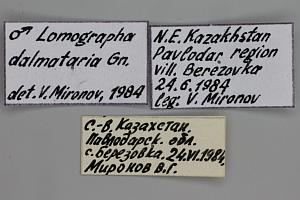 ♂ Lomographa
dalmataria Gn.
det. V. Mironov, 1984
N.E. Kazakhstan
Pavlodar region
vill. Berezovka
24.6.1984
leg. V. Mironov
С.-В. Казахстан.
Павлодарск. обл.
с. Березовка, 24.VI.1984,
Миронов В.Г.